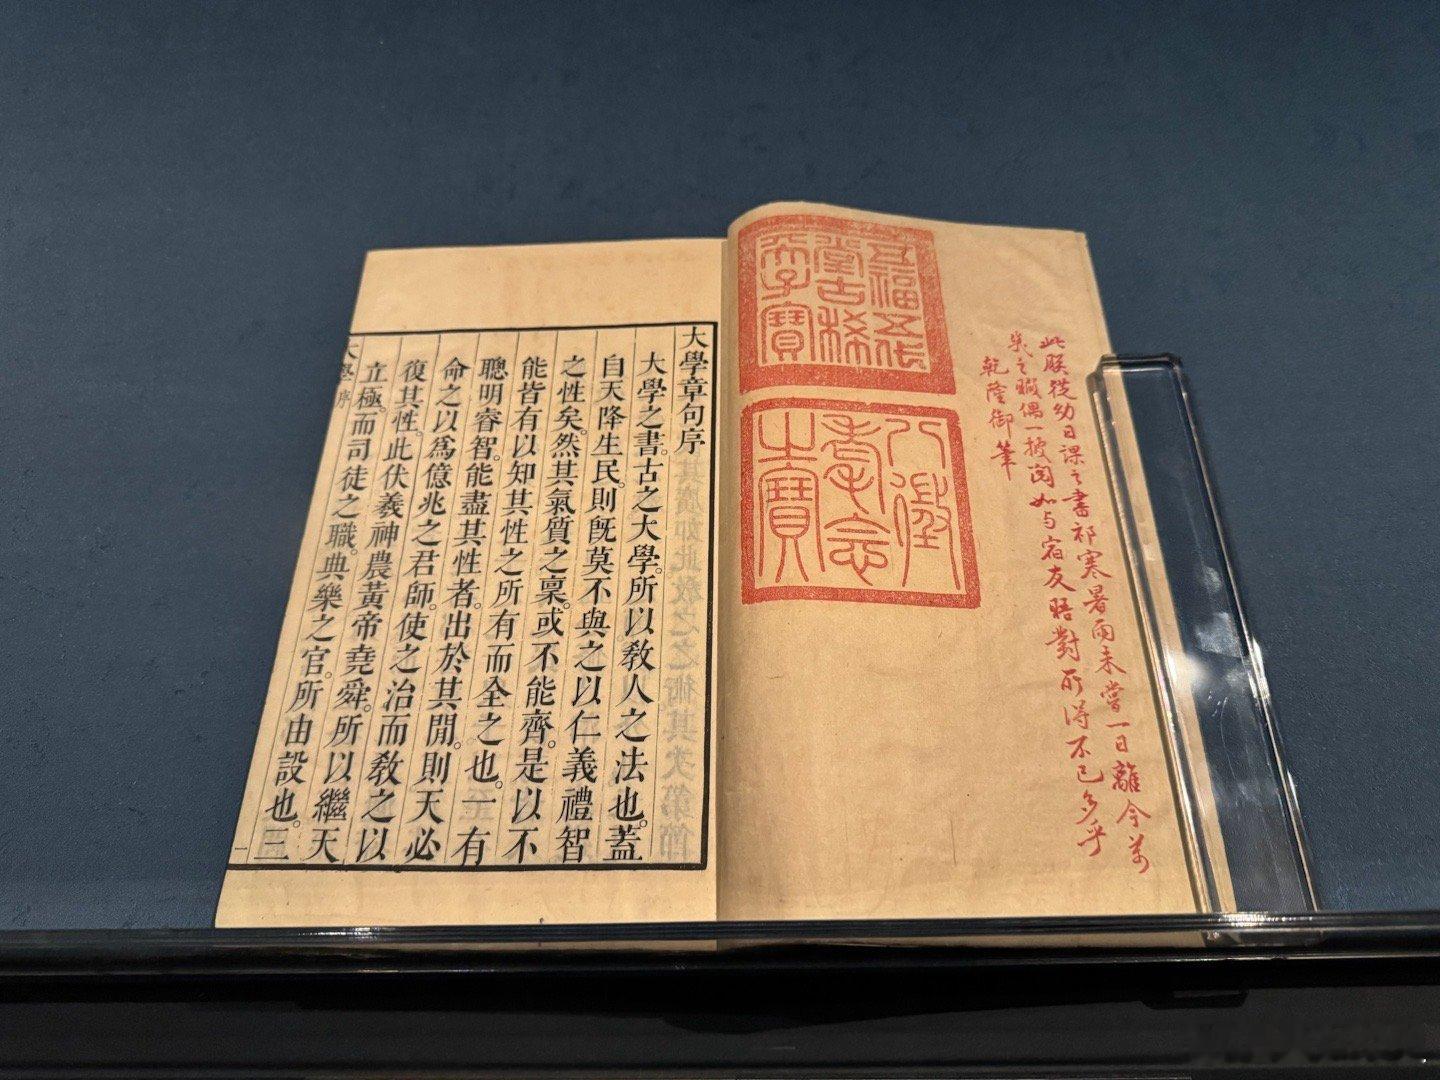 此朕從幼日課之書祁寒暑雨未嘗一日離今萬
幾之暇偶一披閱如与宿友晤對所得不已多乎
乾隆御筆
五福五代
堂古稀
天子寶
八徵
耄念
之寶
大學章句序
大學之書。古之大學。所以敎人之法也。蓋
自天降生民。則旣莫不與之以仁義禮智
之性矣。然其氣質之稟。或不能齊。是以不
能皆有以知其性之所有而全之也。一有
聰明睿智。能盡其性者。出於其閒。則天必
命之以爲億兆之君師。使之治而敎之以
復其性。此伏羲神農黃帝堯舜。所以繼天
立極。而司徒之職。典樂之官。所由設也。三
大學序
一